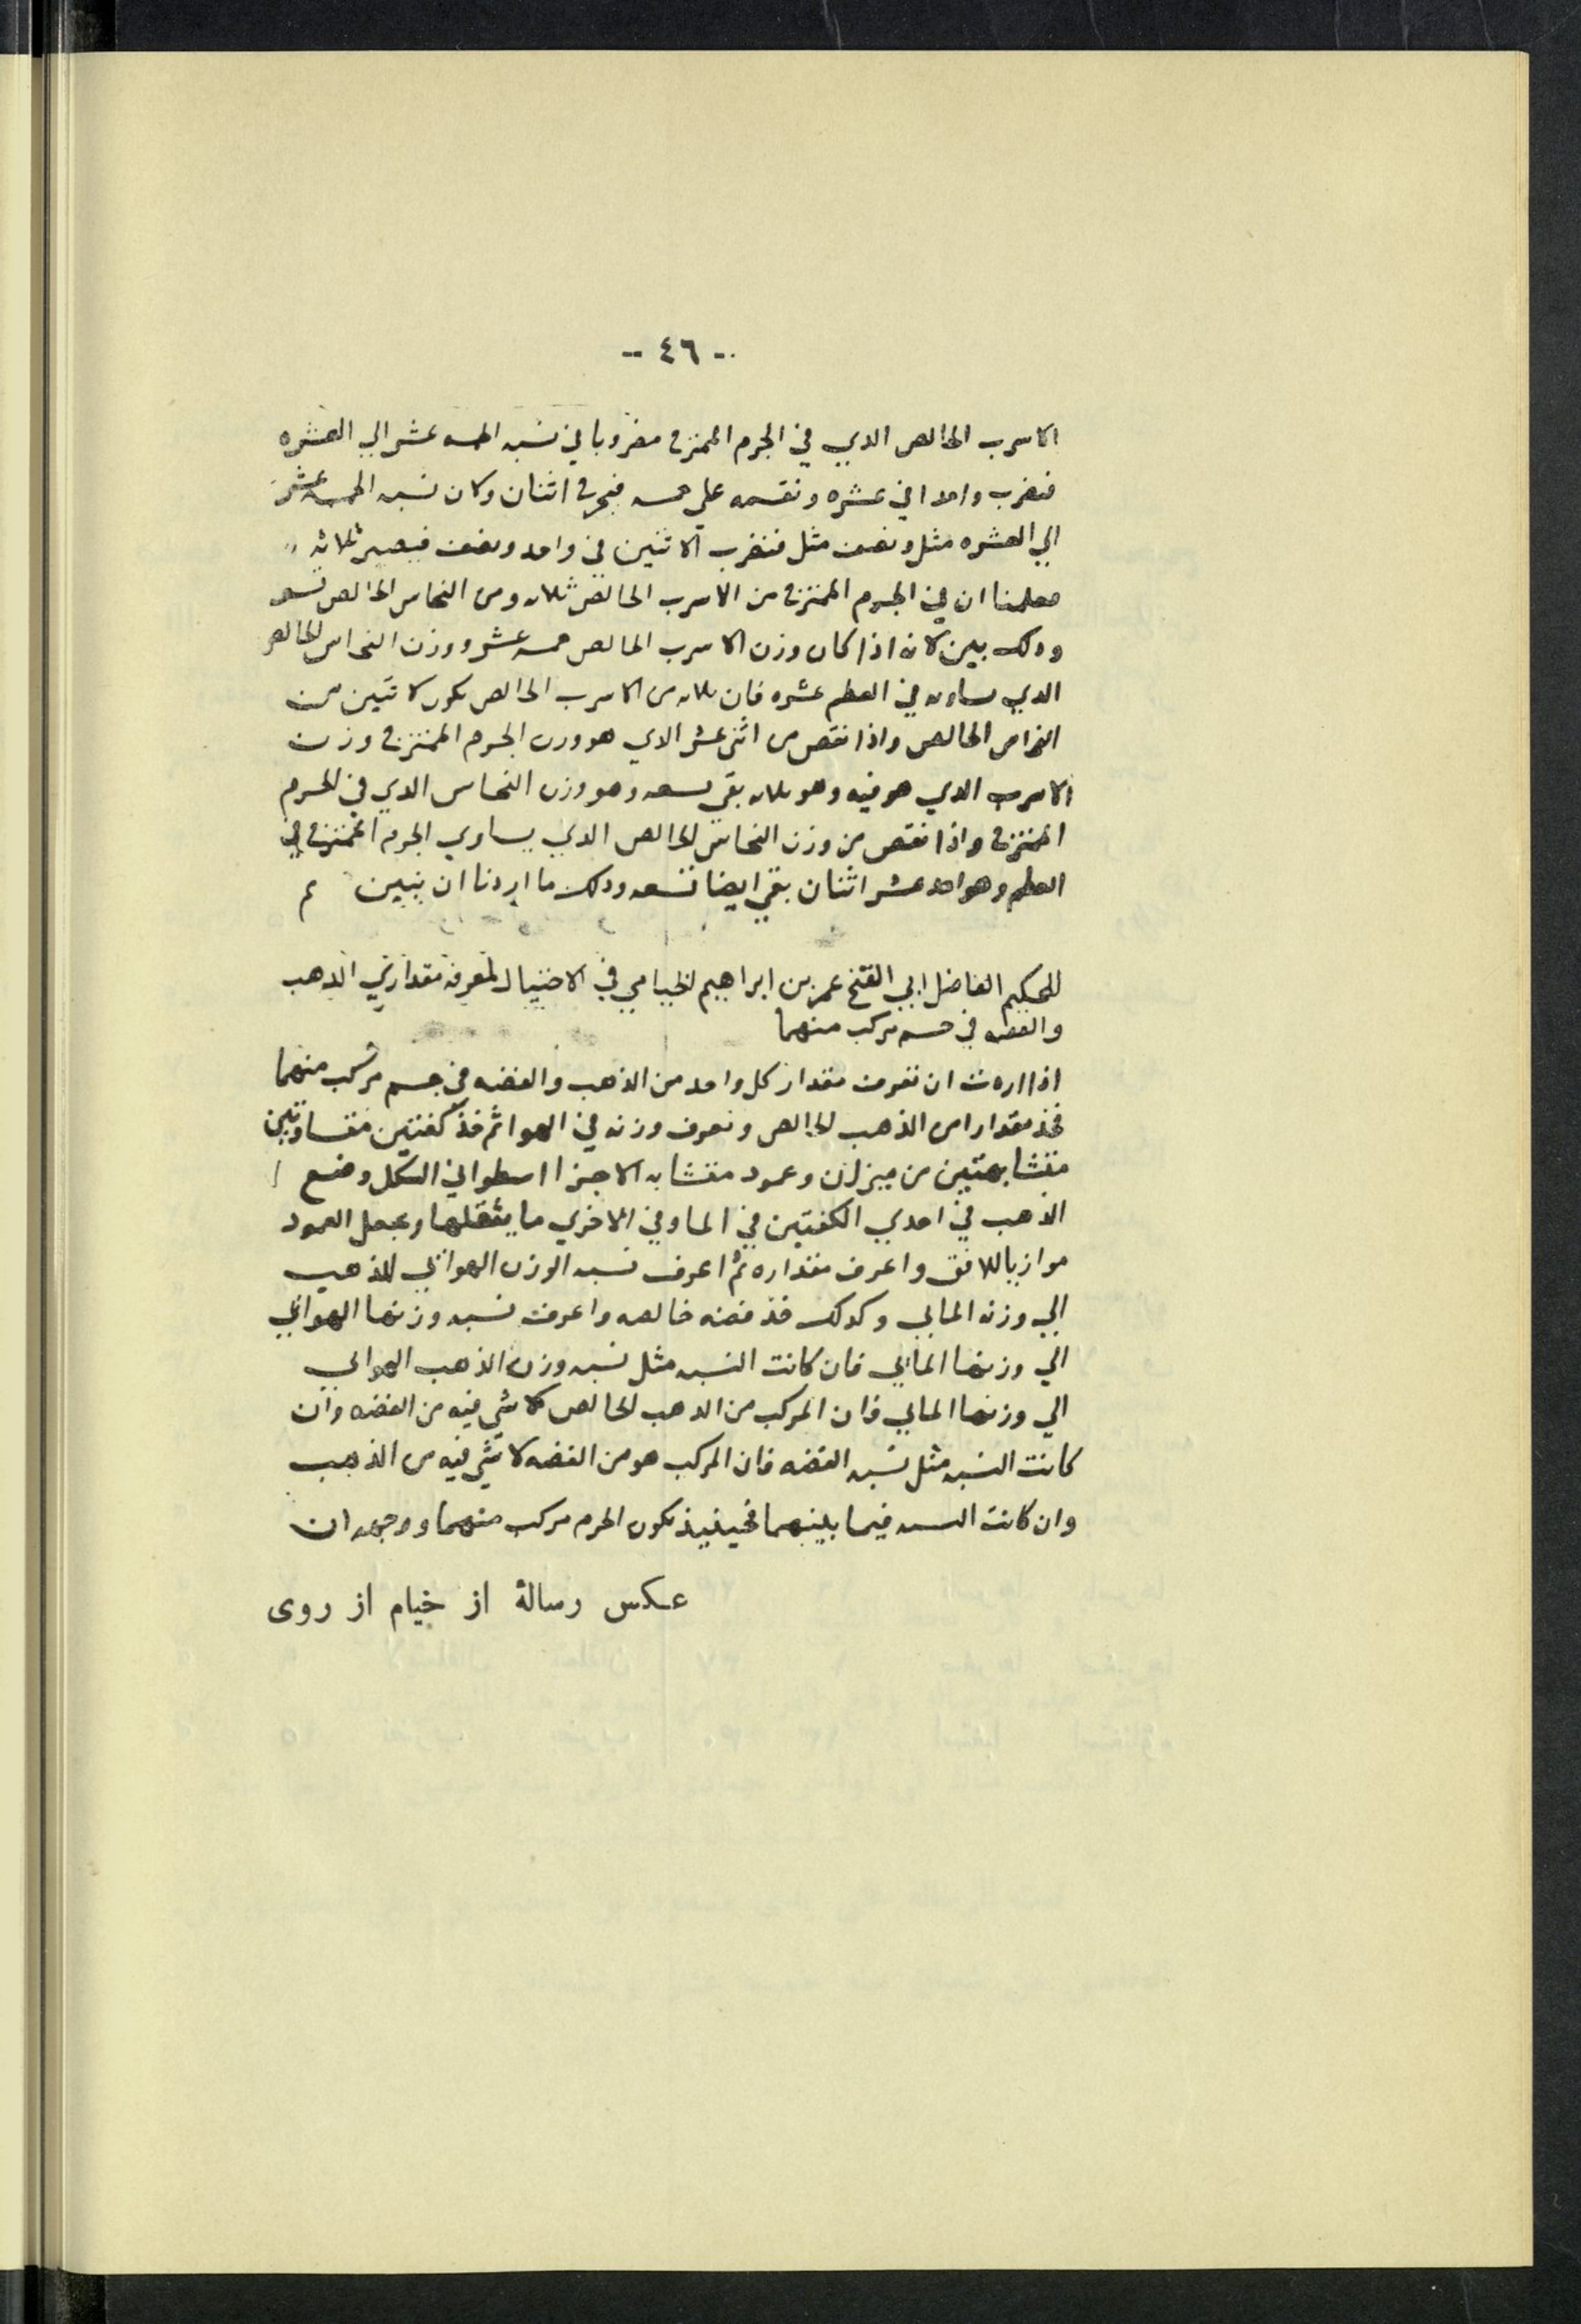 -- ٤٦ --
الاسرب الخالص الدي في الجرم الممتزج مضروبا في نسبه الخمسه عشر الي العشره
فنضرب واحدا في عشره ونقسمه علي خمسه فيخرج اثنان وكان نسبه الخمسه عشر
الي العشره مثل ونصف مثل فنضرب الاثنين في واحد ونصف فيصير ثلاثه
فعلمنا ان في الجرم الممتزج من الاسرب الخالص ثلاثه ومن النحاس الخالص تسعه
ودلك بين لانه اذا كان وزن الاسرب الخالص خمسه عشر ووزن النحاس الخالص
الدي يساويه في العظم عشره فان ثلاثه من الاسرب الخالص يكون لاثنين من
النحاس الخالص واذا نقص من اثني عشر الدي هو وزن الجرم الممتزج وزن
الاسرب الدي هو فيه وهو ثلاثه بقي تسعه وهو وزن النحاس الدي في الجرم
الممتزج واذا نقص من وزن النحاس الخالص الدي يساوي الجرم الممتزج في
العظم وهو احد عشر اثنان بقي ايضا تسعه ودلك ما اردنا ان نبين م
للحكيم الفاضل ابي الفتح عمر بن ابراهيم الخيامي في الاحتيال لمعرفه مقداري الذهب
والفضه في جسم مركب منهما
اذا اردت ان تعرف مقدار كل واحد من الذهب والفضه في جسم مركب منهما
فخذ مقدارا من الذهب الخالص وتعرف وزنه في الهوا ثم خذ كفتين متساويتين
متشابهتين من ميزان وعمود متشابه الاجزا اسطواني الشكل وضع
الذهب في احدي الكفتين في الما وفي الاخري ما يثقلها وجعل العمود
موازيا للافق واعرف مقداره ثم اعرف نسبه الوزن الهوائي للذهب
الي وزنه المائي وكدلك خذ فضه خالصه واعرف نسبه وزنها الهوائي
الي وزنها المائي فان كانت النسبه مثل نسبه وزن الذهب الهوائي
الي وزنها المائي فان المركب من الدهب الخالص لا شي فيه من الفضه وان
كانت النسبه مثل نسبه الفضه فان المركب هو من الفضه لا شي فيه من الذهب
وان كانت النسبه فيما بينهما فحينيذ يكون الجرم مركب منهما ووجهه ان
عکس رسالۀ از خیام از روی